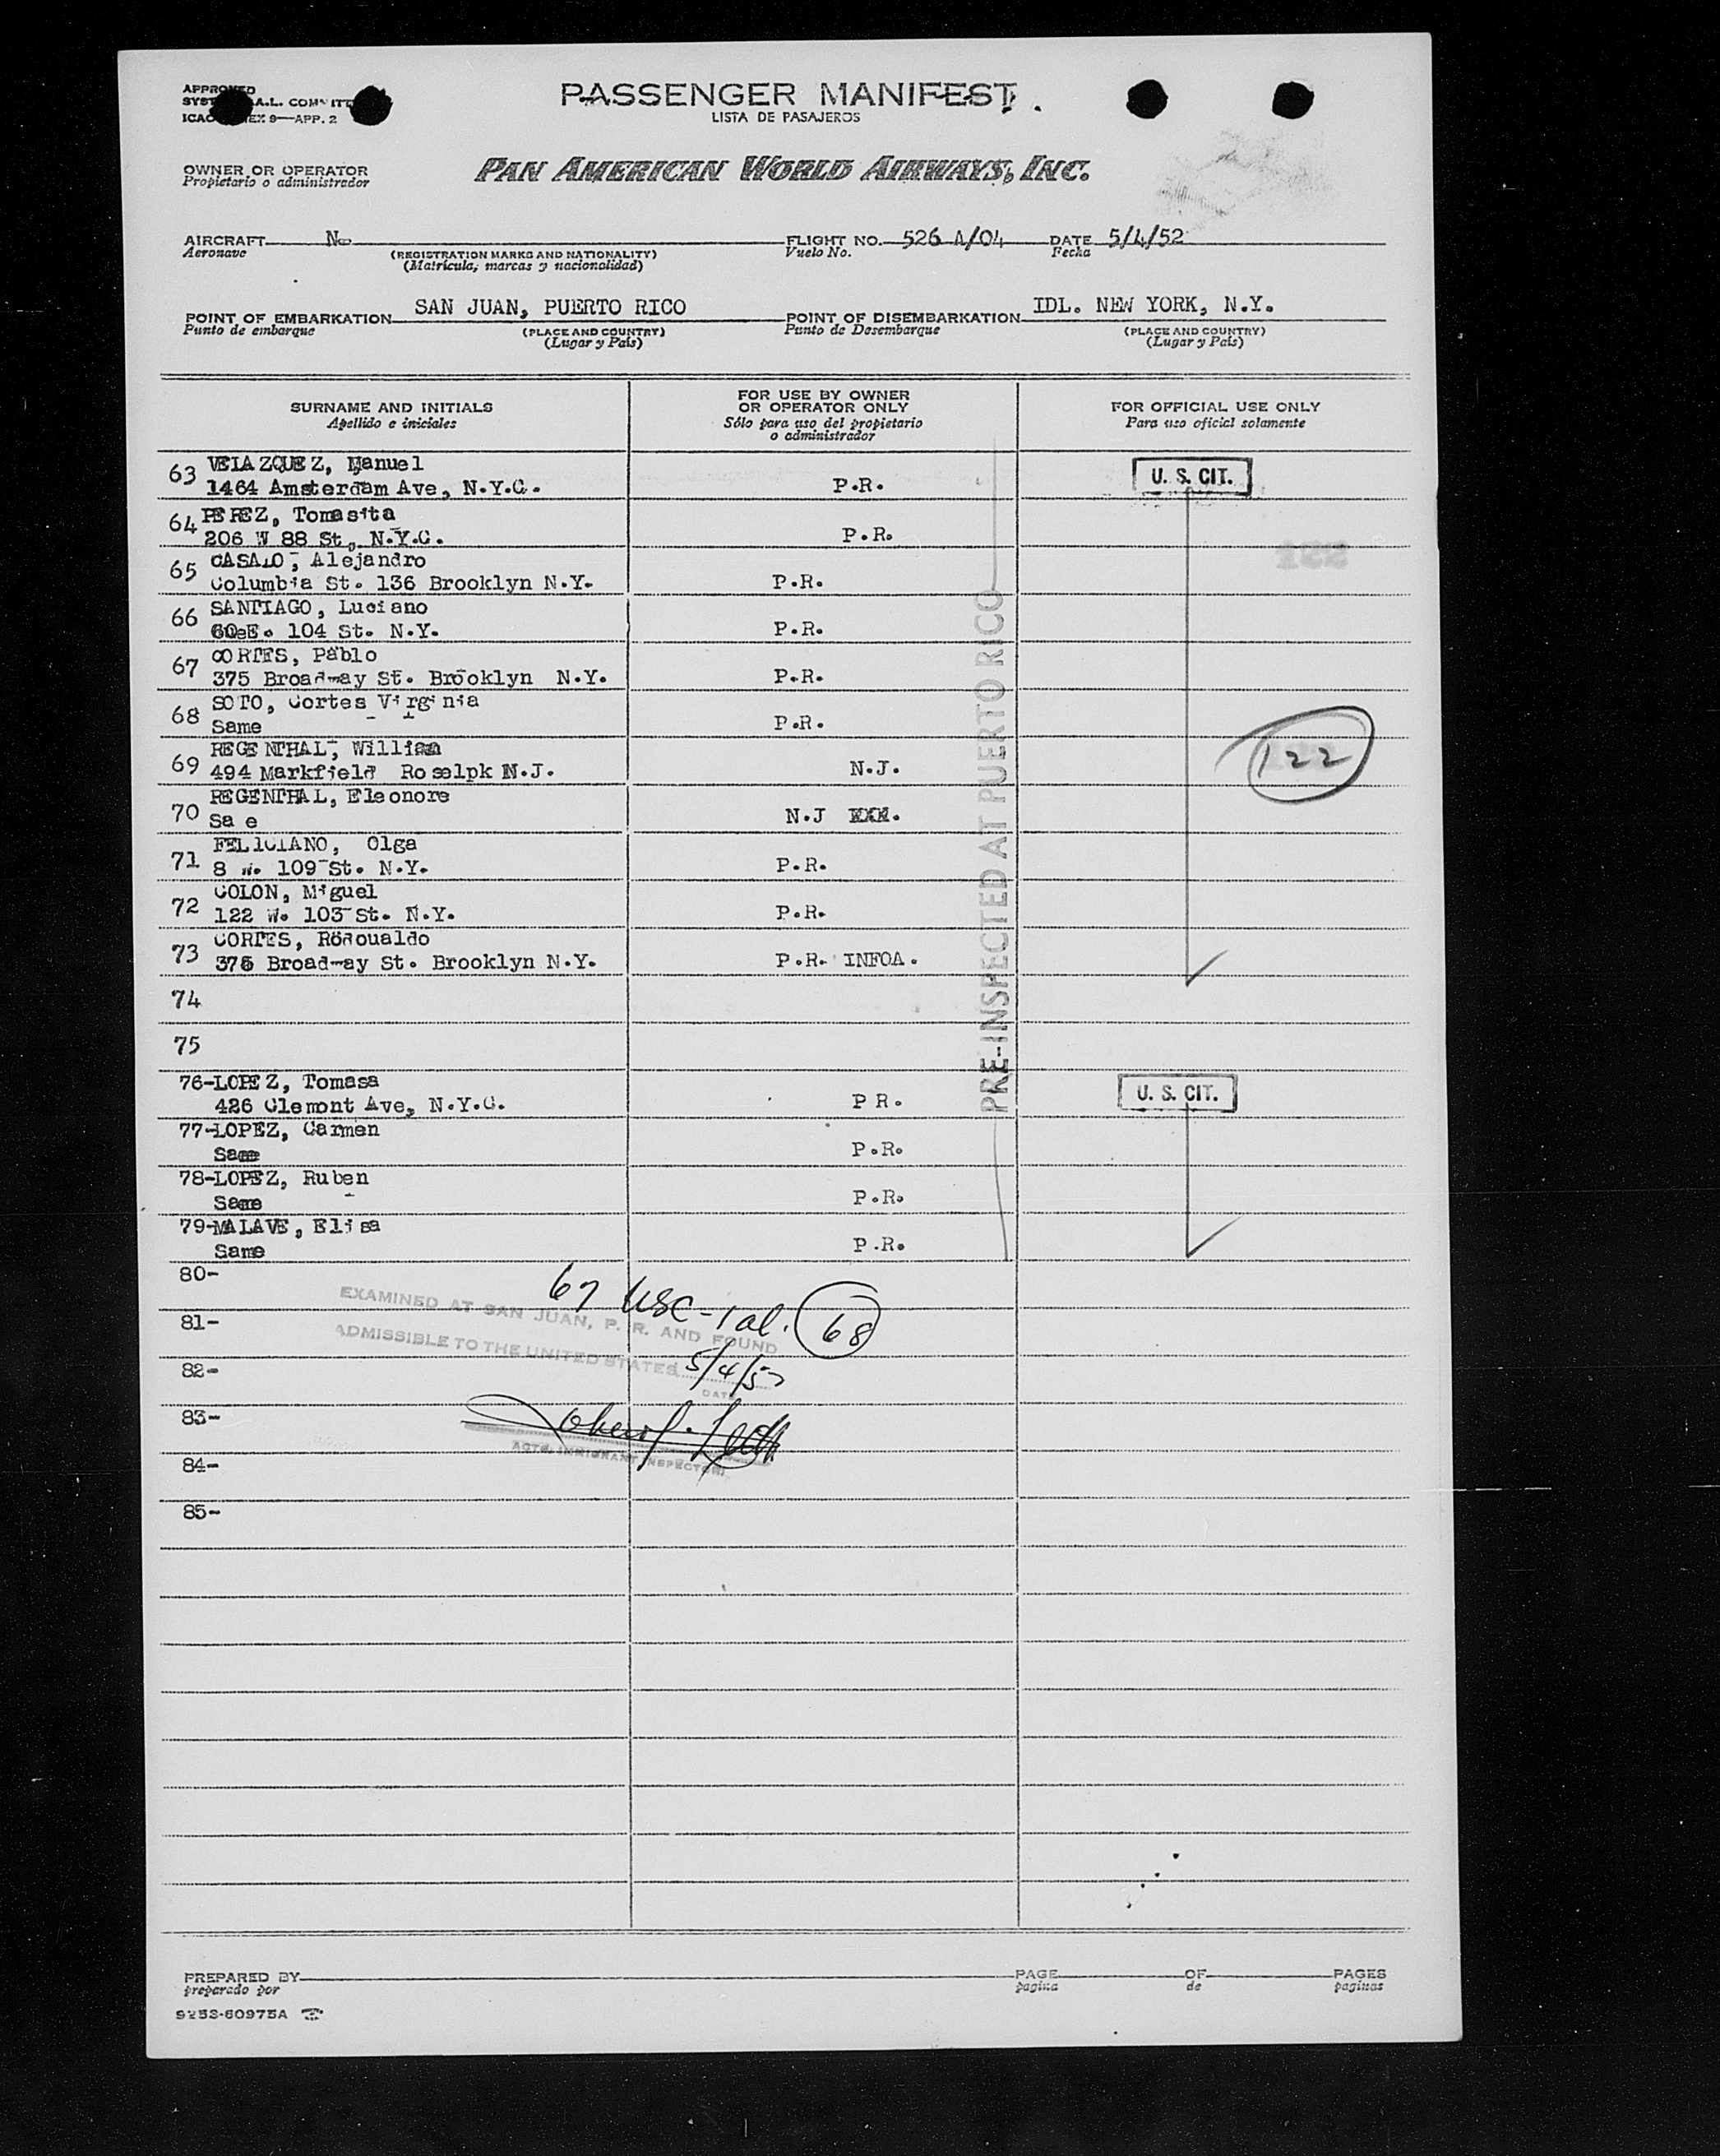 APPROVED
A.L.
9—APP. 2
PASSENGER MANIFEST
LISTA DE PASAJEROS
OWNER OR OPERATOR
Propietario o administrador
PAN AMERICAN WORLD AIRWAYS, INC.
AIRCRAFT N- FLIGHT NO. 526 A/04 DATE 5/4/52
Aeronave (REGISTRATION MARKS AND NATIONALITY) Vuelo No. Fecha
(Matrícula, marcas y nacionalidad)
POINT OF EMBARKATION SAN JUAN, PUERTO RICO POINT OF DISEMBARKATION IDL. NEW YORK, N.Y.
Punto de embarque (PLACE AND COUNTRY) Punto de Desembarque (PLACE AND COUNTRY)
(Lugar y País) (Lugar y País)
SURNAME AND INITIALS
Apellido e iniciales
FOR USE BY OWNER
OR OPERATOR ONLY
Sólo para uso del propietario
o administrador
FOR OFFICIAL USE ONLY
Para uso oficial solamente
63 VELAZQUEZ, Manuel
1464 Amsterdam Ave, N.Y.C. P.R. U. S. CIT.
64 PEREZ, Tomasita
206 W 88 St, N.Y.C. P.R.
65 CASALO, Alejandro
Columbia St. 136 Brooklyn N.Y. P.R.
66 SANTIAGO, Luciano
104 St. N.Y. P.R.
67 CORTES, Pablo
375 Broadway St. Brooklyn N.Y. P.R.
68 SOTO, Cortes Virginia
Same P.R.
69 REGENTHAL, William
494 Markfield Roselpk N.J. N.J.
122
70 REGENTHAL, Eleonore
Sa e N.J XXX.
71 FELICIANO, Olga
8 W. 109 St. N.Y. P.R.
72 COLON, Miguel
122 W. 103 St. N.Y. P.R.
73 CORTES, Rodoualdo
375 Broadway St. Brooklyn N.Y. P.R. INFOA.
74
75
PRE-INSPECTED AT PUERTO RICO
76-LOPEZ, Tomasa
426 Clemont Ave, N.Y.C. P R. U. S. CIT.
77-LOPEZ, Carmen
Same P.R.
78-LOPEZ, Ruben
Same P.R.
79-MALAVE, Elisa
Same P.R.
80-
67 USC-1 al. 68
EXAMINED AT SAN JUAN, P. R. AND FOUND
81-
ADMISSIBLE TO THE UNITED STATES 5/4/52
82-
DATE
83-
ACTG. IMMIGRANT INSPECTOR
84-
85-
PREPARED BY PAGE OF PAGES
preparado por pagina de paginas
9253-60975A